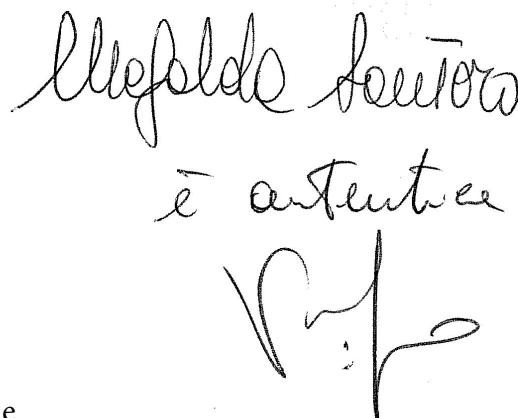 Mafalda Santoro
è autentica
e